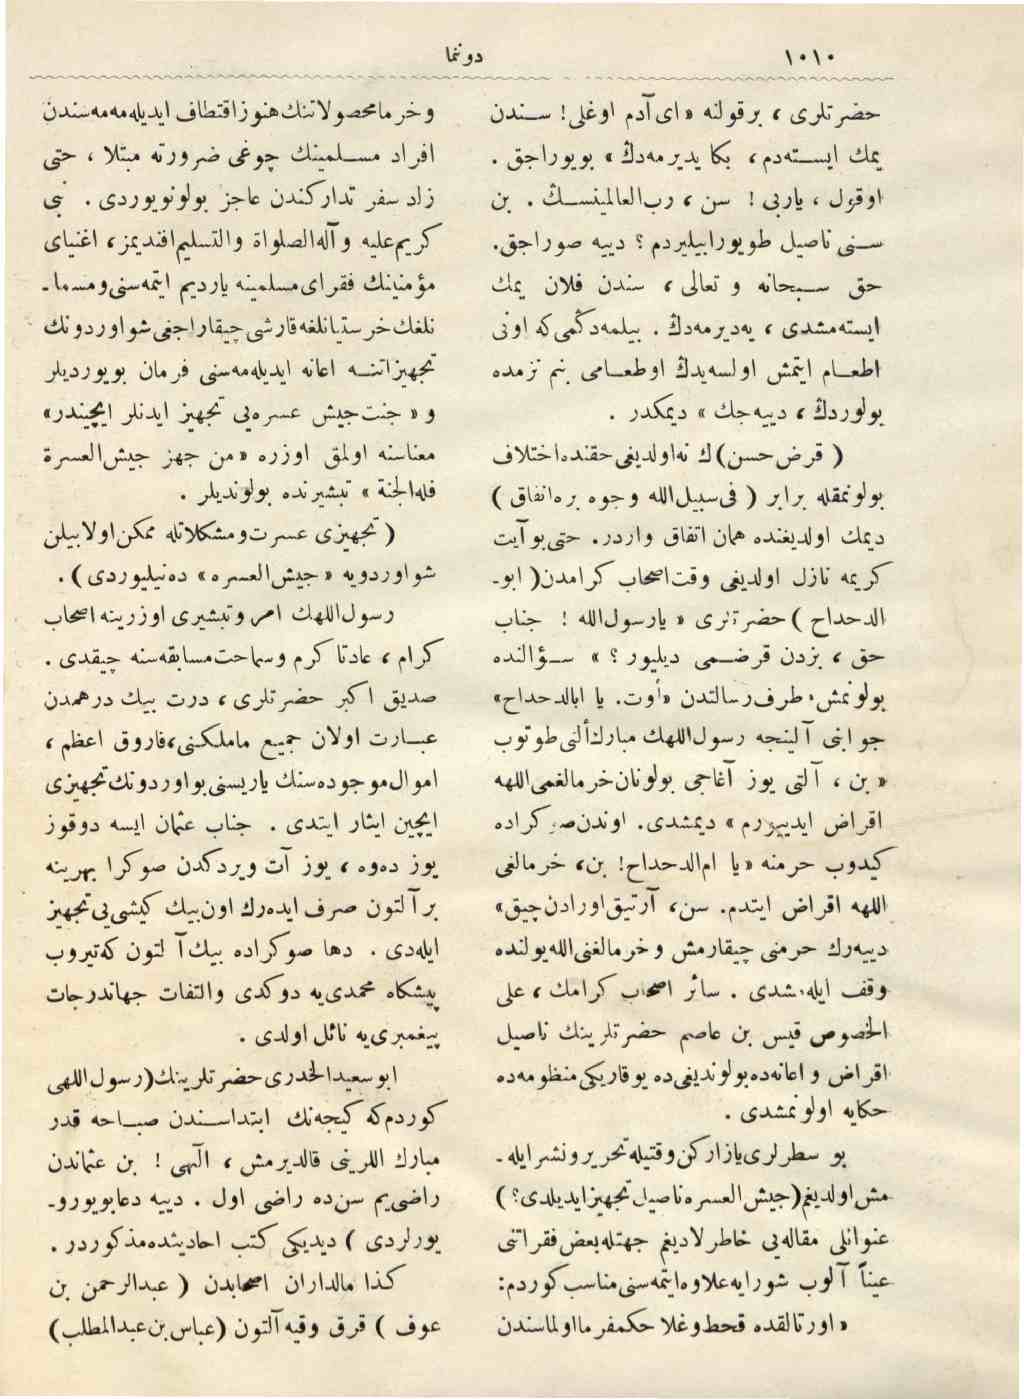 ١٠١٠
دونما
حضرتلری ، برقولنه « ای آدم اوغلی! ســندن
یمك ایســتەدم ، بكا یدیرمەدڭ » بویوراجق .
اوقول ، یاربی ! سن ، رب‌العالمینســڭ . بن
ســنی ناصیل طویورابیلیردم ؟ دییه صوراجق.
حق ســبحانه و تعالی ، سندن فلان یمك
ایستەمشدی ، یەدیرمەدڭ . بیلمەدڭمی‌که اونی
اطعــام ایتمش اولسەیدڭ اوطعــامی بنم نزمده
بولوردڭ ، دییەجك » دیمکدر .
( قرض‌حسن) ك نەاولدیغی‌حقنده‌اختلاف
بولونمقله برابر ( فی‌سبیل‌الله وجوه بره‌انفاق )
دیمك اولدیغنده همان اتفاق واردر. حتی‌بوآیت
کریمه نازل اولدیغی وقت‌اصحاب کرامدن( ابو-
الدحداح ) حضرتلری « یارسول‌الله ! جناب
حق ، بزدن قرضــمی دیلیور ؟ » ســؤالنده
بولونمش، طرف‌رسالتدن «أوت. یا اباالدحداح»
جوابنی آلینجه رسول‌اللهك مبارك‌ألنی‌طوتوب
« بن ، آلتی یوز آغاجی بولونان‌خرمالغمی‌اللهه
اقراض ایدییورم » دیمشدی. اوندن‌صوکراده
کیدوب حرمنه «یا ام‌الدحداح! بن، خرمالغی
اللهه اقراض ایتدم. سن، آرتیق‌اورادن‌چیق»
دییەرك حرمنی چیقارمش وخرمالغنی‌الله‌یولنده
وقف ایلەمشدی . سائر اصحاب کرامك ، علی
الخصوص قیس بن عاصم حضرتلرینك ناصیل
اقراض واعانەده‌بولوندیغی‌ده یوقاریکی‌منظومەده
حکایه اولونمشدی .
بو سطرلری‌یازارکن‌وقتیله‌تحریرونشرایله-
مش‌اولدیغم(جیش‌العسره‌ناصیل‌تجهیزایدیلدی؟ )
عنوانلی مقالەیی خاطرلادیغم جهتله‌بعض‌فقراتنی
عیناً آلوب شورایه‌علاوه‌ایتمەسنی‌مناسب‌کوردم:
« اورتالقده قحط‌وغلا حکمفرمااولماسندن
وخرمامحصولاتنك‌هنوزاقتطاف ایدیلەمەمەسندن
افراد مســلمینك چوغی ضرورته مبتلا ، حتی
زاد سفر تدارکندن عاجز بولونویوردی . نبی
کریم‌علیه وآله‌الصلواة والتسلیم‌افندیمز ، اغنیای
مؤمنینك فقرای‌مسلمینه یاردیم ایتمەسنی‌ومسلما-
نلغك‌خرستیانلغه‌قارشی‌چیقاراجغی‌شواوردونك
تجهیزاتنــه اعانه ایدیلەمەسنی فرمان بویوردیلر
و « جنت‌جیش عسرەیی تجهیز ایدنلر ایچیندر»
معناسنه اولمق اوزره «من جهز جیش‌العسرة
فله‌الجنة » تبشیرنده بولوندیلر .
( تجهیزی عسرت‌ومشکلاتله ممکن‌اولابیلن
شواوردویه « جیش‌العسره » دەنیلیوردی ) .
رسول‌اللهك امر وتبشیری اوزرینه‌اصحاب
کرام ، عادتا کرم وسماحت‌مسابقەسنه چیقدی .
صدیق اکبر حضرتلری ، درت بیك درهمدن
عبــارت اولان جمیع ماملکنی،فاروق اعظم ،
اموال‌موجوده‌سنك یاریسنی‌بواوردونك‌تجهیزی
ایچین ایثار ایتدی . جناب عثمان ایسه دوقوز
یوز دەوه ، یوز آت ویردکدن صوکرا بهرینه
برآلتون صرف ایدەرك اون‌بیك کیشی‌یی‌تجهیز
ایلەدی . دها صوکراده بیك‌آلتون کەتیروب
پیشکاه محمدی‌یه دوکدی والتفات جهاندرجات
پیغمبری‌یه نائل اولدی .
ابوسعیدالخدری‌حضرتلرینك(رسول‌اللهی
کوردم‌که کیجەنك ابتداســندن صبــاحه قدر
مبارك اللرینی قالدیرمش ، الٓهی ! بن عثماندن
راضی‌یم سن‌ده راضی اول . دییه دعابویورو-
یورلردی ) دیدیکی کتب احادیثده‌مذکوردر .
کذا مالداران اصحابدن ( عبدالرحمن بن
عوف ) قرق وقیه‌آلتون (عباس‌بن‌عبدالمطلب)